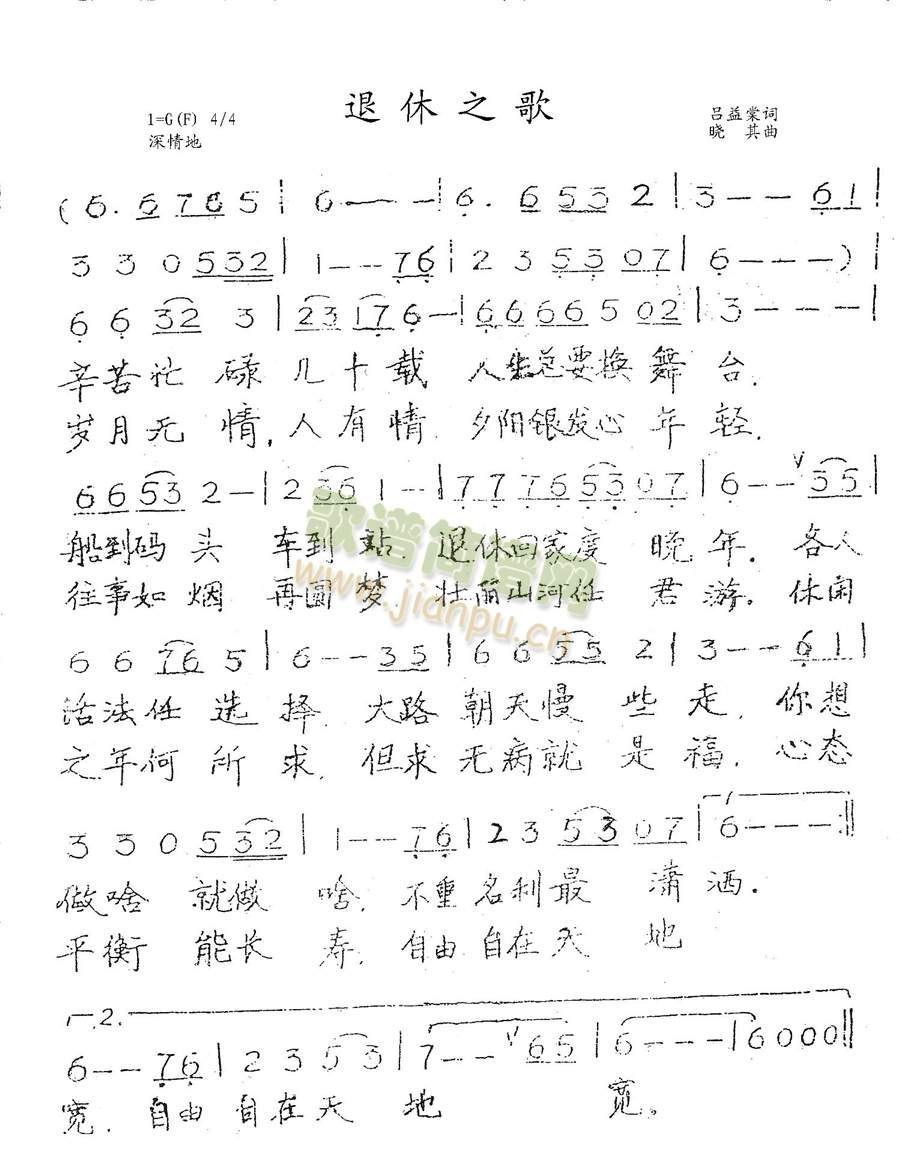 退休之歌
1=G(F) 4/4
深情地
吕益棠词
晓 其曲
(6. 6 7 6 5 | 6 - - - | 6. 6 5 3 2 | 3 - - 6 1 |
3 3 0 5 3 2 | 1 - - 7 6 | 2 3 5 3 0 7 | 6 - - - ) |
6 6 3 2 3 | 2 3 1 7 6 - | 6 6 6 6 5 0 2 | 3 - - - |
辛苦忙 碌 几 十 载 人生总要换 舞 台.
岁月无 情, 人 有 情 夕阳银发心 年 轻.
6 6 5 3 2 - | 2 3 6 1 - - | 7 7 7 6 5 3 0 7 | 6 - - V 3 5 |
船到码 头 车到 站 退休回家度 晚 年. 各人
往事如 烟 再圆 梦 壮丽山河任 君 游. 休闲
歌谱简谱网
www.jianpu.cn
6 6 7 6 5 | 6 - - 3 5 | 6 6 5 5 2 | 3 - - 6 1 |
活法任 选 择. 大路 朝天慢 些 走. 你想
之年何 所 求. 但求 无病就 是 福. 心态
3 3 0 5 3 2 | 1 - - 7 6 | 2 3 5 3 0 7 | 1 6 - - - :||
做啥 就做 啥. 不重 名利最 潇 洒.
平衡 能长 寿. 自由 自在天 地
2.
6 - - 7 6 | 2 3 5 3 | 7 - - V 6 5 | 6 - - - | 6 0 0 0 ||
宽. 自由 自在天 地 宽。